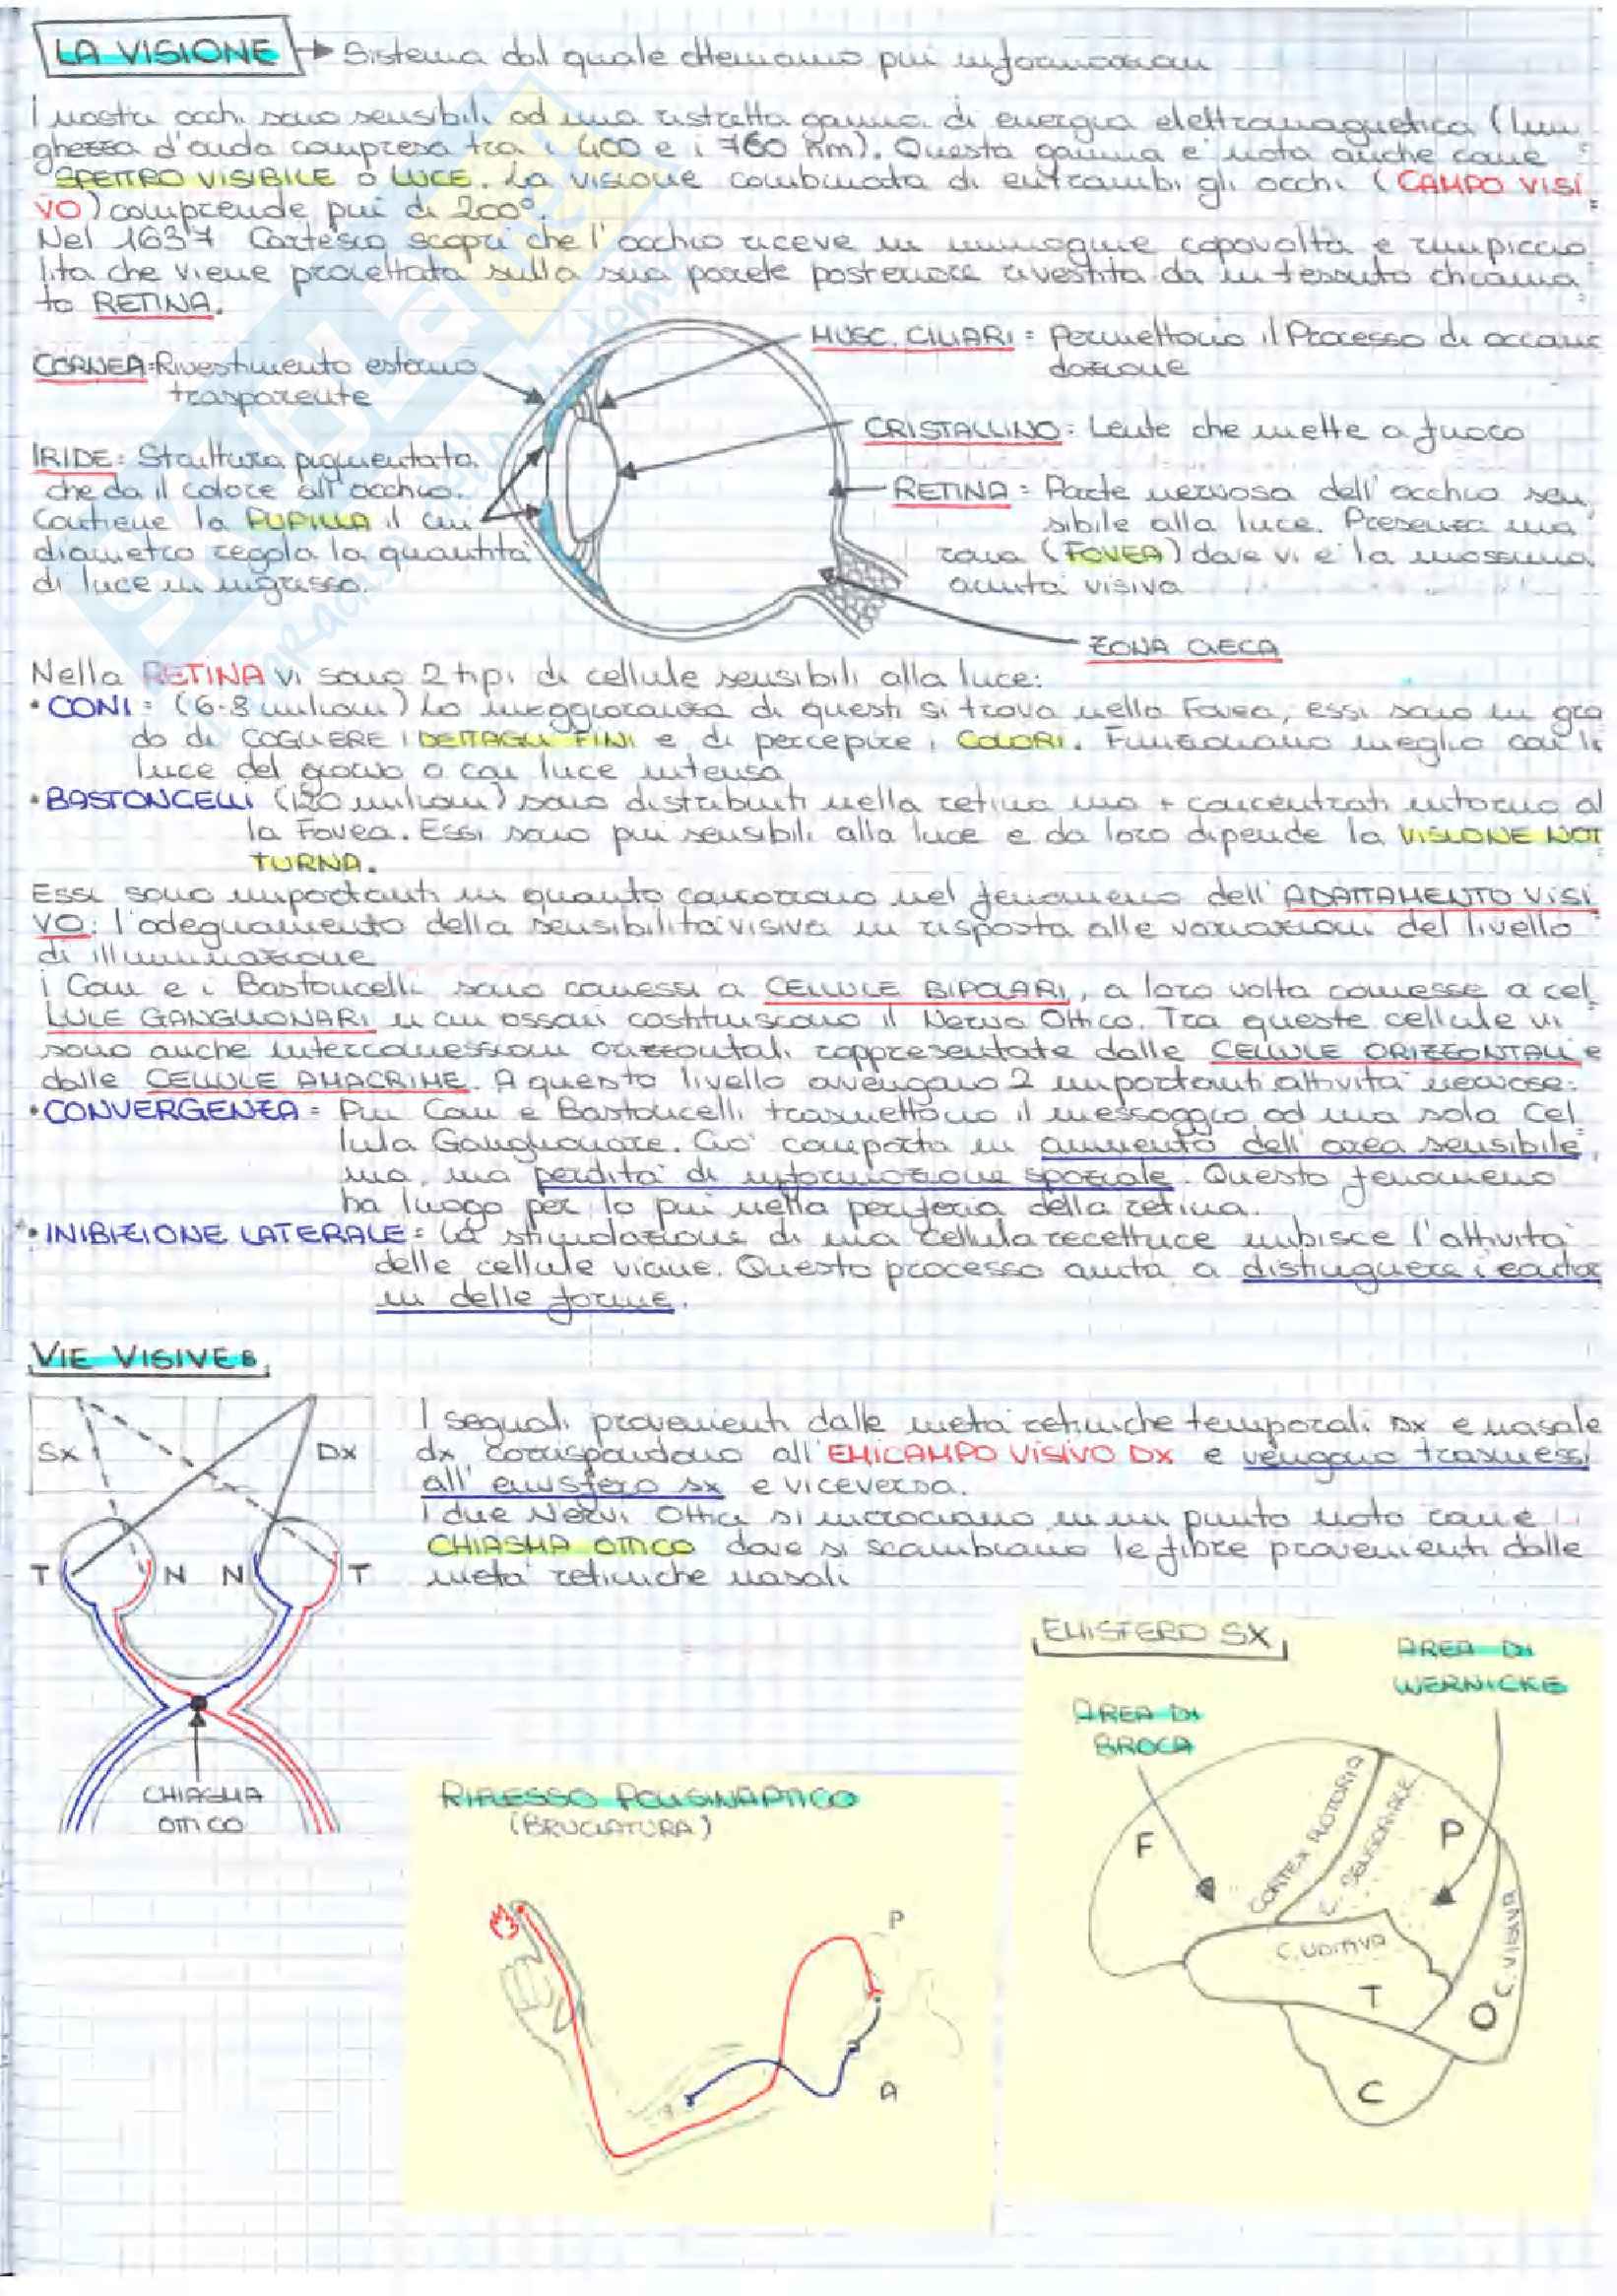 LA VISIONE → Sistema dal quale otteniamo più informazioni
I nostri occhi sono sensibili ad una ristretta gamma di energia elettromagnetica (lun
ghezza d'onda compresa tra i 400 e i 760 Nm). Questa gamma è nota anche come
SPETTRO VISIBILE o LUCE. La visione combinata di entrambi gli occhi (CAMPO VISI
VO) comprende più di 200°.
Nel 1637 Cartesio scoprì che l'occhio riceve un immagine capovolta e rimpiccio
lita che viene proiettata sulla sua parete posteriore rivestita da un tessuto chiama
to RETINA.
CORNEA: Rivestimento esterno
trasparente
IRIDE: Struttura pigmentata
che da il colore all'occhio.
Contiene la PUPILLA il cui
diametro regola la quantità
di luce in ingresso.
MUSC. CILIARI = Permettono il Processo di accomo
dazione
CRISTALLINO: Lente che mette a fuoco
RETINA = Parte nervosa dell'occhio sen
sibile alla luce. Presenza una
zona (FOVEA) dove vi è la massima
acuità visiva
ZONA CIECA
Nella RETINA vi sono 2 tipi di cellule sensibili alla luce:
• CONI = (6-8 milioni) La maggioranza di questi si trova nella Fovea, essi sono in gra
do di COGLIERE i DETTAGLI FINI e di percepire i COLORI. Funzionano meglio con la
luce del giorno o con luce intensa
• BASTONCELLI (120 milioni) sono distribuiti nella retina ma + concentrati intorno al
la Fovea. Essi sono più sensibili alla luce e da loro dipende la VISIONE NOT
TURNA.
Essi sono importanti in quanto concorrono nel fenomeno dell'ADATTAMENTO VISI
VO: l'adeguamento della sensibilità visiva in risposta alle variazioni del livello
di illuminazione
i Coni e i Bastoncelli sono connessi a CELLULE BIPOLARI, a loro volta connesse a cel
LULE GANGLIONARI i cui assoni costituiscono il Nervo Ottico. Tra queste cellule vi
sono anche interconnessioni orizzontali rappresentate dalle CELLULE ORIZZONTALI e
dalle CELLULE AMACRINE. A questo livello avvengono 2 importanti attività nervose:
• CONVERGENZA = Più Coni e Bastoncelli trasmettono il messaggio ad una sola Cel
lula Ganglionare. Ciò comporta un aumento dell'area sensibile,
ma, una perdita di informazione spaziale. Questo fenomeno
ha luogo per lo più nella periferia della retina.
• INIBIZIONE LATERALE = La stimolazione di una cellula recettrice inibisce l'attività
delle cellule vicine. Questo processo aiuta a distinguere i contor
ni delle forme.
VIE VISIVE
Sx
Dx
T
N
N
T
CHIASMA
OTTICO
I segnali provenienti dalle metà retiniche temporali sx e nasale
dx corrispondono all'EMICAMPO VISIVO DX e vengono trasmessi
all'emisfero sx e viceversa.
I due Nervi Ottici si incrociano in un punto noto come
CHIASMA OTTICO dove si scambiano le fibre provenienti dalle
metà retiniche nasali
RIFLESSO POLISINAPTICO
(BRUCIATURA)
P
A
EMISFERO SX
AREA DI
WERNICKE
AREA DI
BROCA
F
CORTEX MOTORIA
C. SENSORIALE
P
C. UDITIVA
T
O
C. VISIVA
C